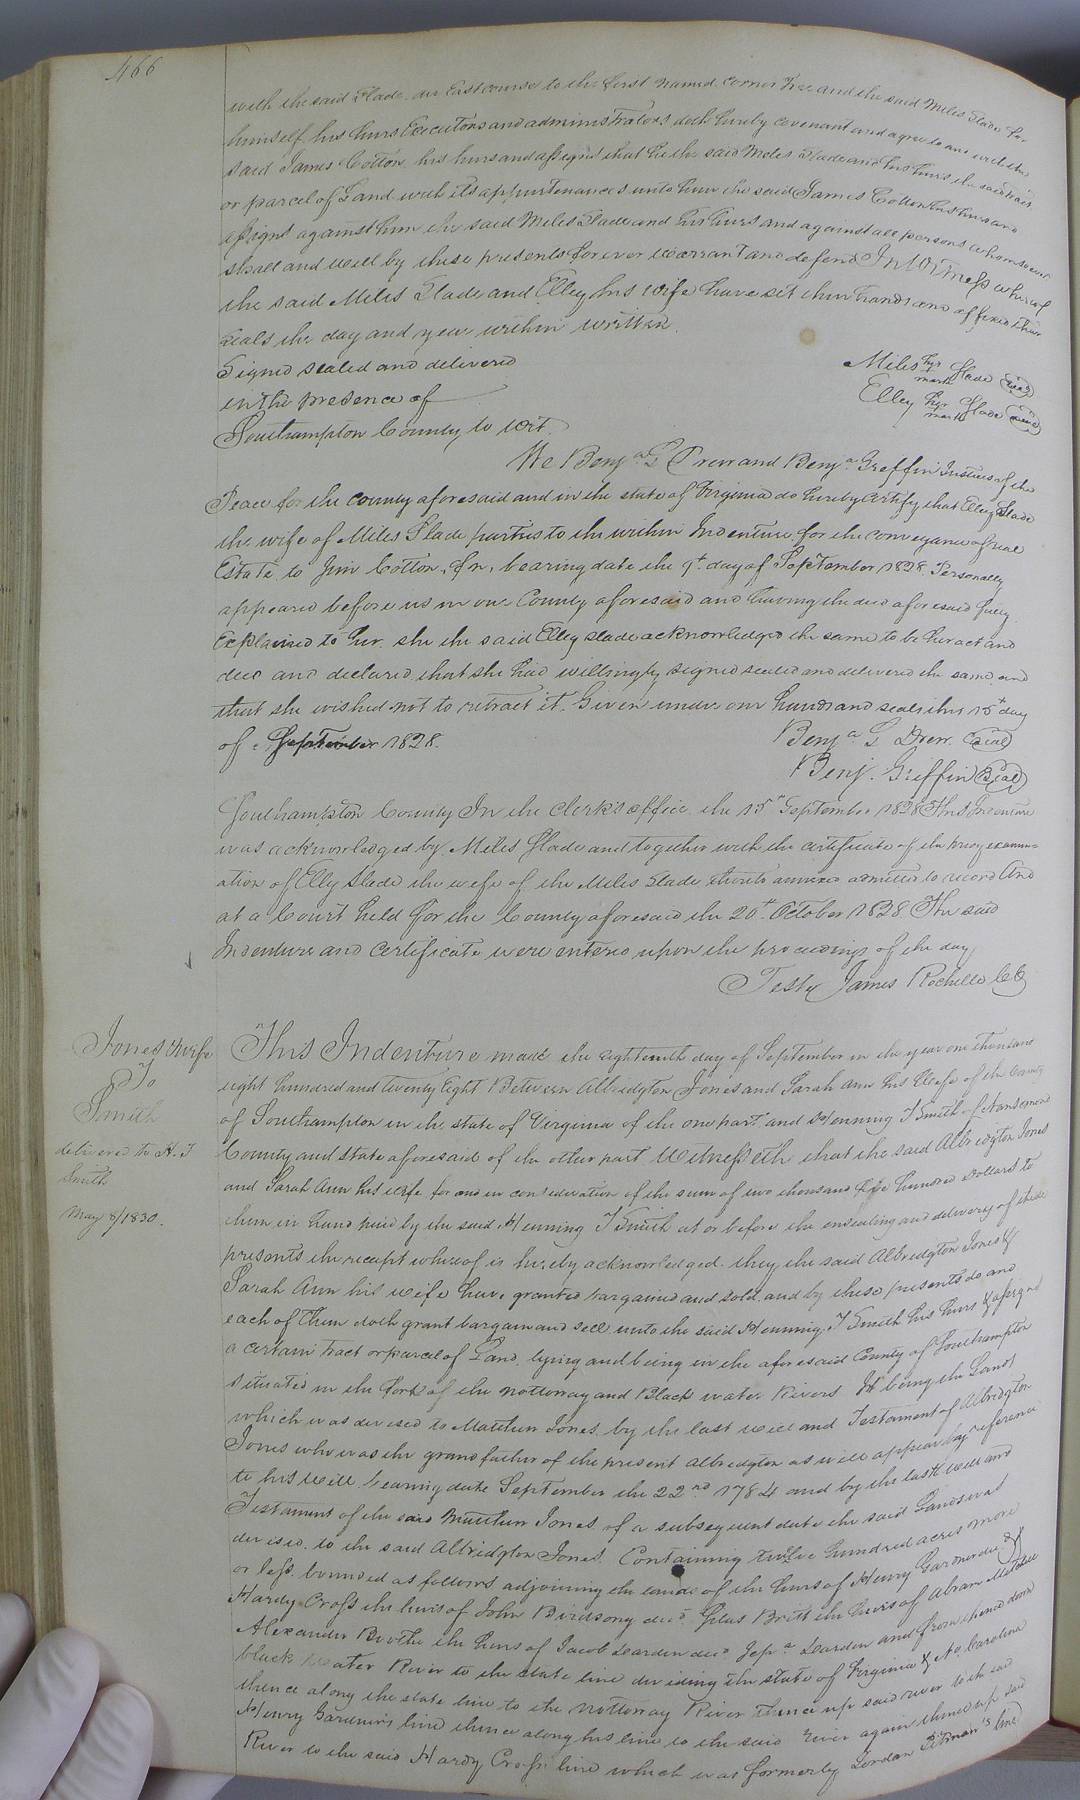 466
with the said Slade due East course to the first named corner tree and the said Miles Slade for
himself his heirs Executors and administrators doth hereby covenant and agree to and with the
said James Cotton his heirs and assigns that he the said Miles Slade and his heirs the said tract
or parcel of Land with its appurtenances unto him the said James Cotton his heirs and
assigns against him the said Miles Slade and his heirs and against all persons whomsoever
shall and will by these presents forever warrant and defend In Witness whereof
the said Miles Slade and Elley his wife have set their hands and affixed their
seals the day and year within written.
Signed sealed and delivered
in the presence of
Miles his mark Slade (seal)
Elley her mark Slade (seal)
Southampton County to wit.
We Benja. G Drew and Benja. Griffin Justices of the
Peace for the county aforesaid and in the state of Virginia do hereby certify that Elley Slade
the wife of Miles Slade parties to the within Indenture for the conveyance of real
Estate to Jim Cotton, bearing date the day of September 1828. Personally
appeared before us in our County aforesaid and having the deed aforesaid fully
Explained to her. she the said Elley Slade acknowledged the same to be her act and
deed and declared that she had willingly signed sealed and delivered the same and
that she wished not to retract it. Given under our hands and seals this 15th day
of September 1828.
Benja G Drew (Seal)
Benj. Griffin (Seal)
Southampton County In the Clerk's office the 15th September 1828 This Indenture
was acknowledged by Miles Slade and together with the certificate of the privy exami-
ation of Elly Slade the wife of the Miles Slade thereto annexed admitted to record And
at a Court held for the County aforesaid the 20th October 1828 The said
Indenture and certificate were entered upon the proceedings of the day
Teste James Rochelle CC
Jones & wife
To
Smith
delivered to H. T
Smith
May 8/1830.
This Indenture made the eighteenth day of September in the year one thousand
eight hundred and twenty Eight Between Albridgton Jones and Sarah Ann his Wife of the County
of Southampton in the state of Virginia of the one part and Henning T Smith of Nansemond
County and state aforesaid of the other part Witnesseth that the said Albridgton Jones
and Sarah Ann his wife for and in consideration of the sum of two thousand five hundred Dollars to
them in hand paid by the said Henning T Smith at or before the ensealing and delivery of these
presents the receipt whereof is hereby acknowledged. they the said Albridgton Jones &
Sarah Ann his wife have granted bargained and sold and by these presents do and
each of them doth grant bargain and sell unto the said Henning T Smith his heirs & assigns
a certain tract or parcel of Land, lying and being in the aforesaid County of Southampton
situated in the fork of the nottoway and Black water Rivers It being the Land
which was devised to Matthew Jones by the last will and Testament of Albridgton
Jones who was the grandfather of the present Albridgton as will appear by reference
to his will bearing date September the 22nd 1784 and by the last will and
Testament of the said Matthew Jones of a subsequent date the said Lands was
devised to the said Albridgton Jones. Containing twelve hundred acres more
or less, bounded as follows adjoining the lands of the heirs of Henry Gardner decd &
Hardy Cross the heirs of John Birdsong decd Britt the heirs of Abram
Alexander Boothe the heirs of Jacob Darden decd Jepa Darden and from thence down
black water River to the state line dividing the state of Virginia & No. Carolina
thence along the state line to the nottoway River thence up said river to the said
Henry Gardner's line thence along his line to the said River again thence up said
River to the said Hardy Cross line which was formerly Jordan Pitman's line